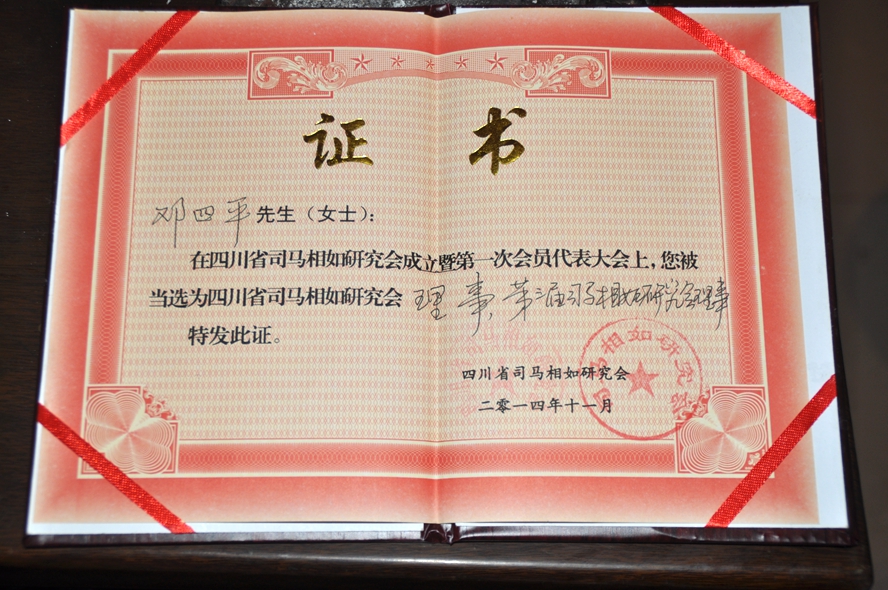 证书
邓四平先生（女士）：
在四川省司马相如研究会成立暨第一次会员代表大会上，您被
当选为四川省司马相如研究会 理事、第二届司马相如研究会理事
特发此证。
四川省司马相如研究会
二零一四年十一月
司马相如研究会